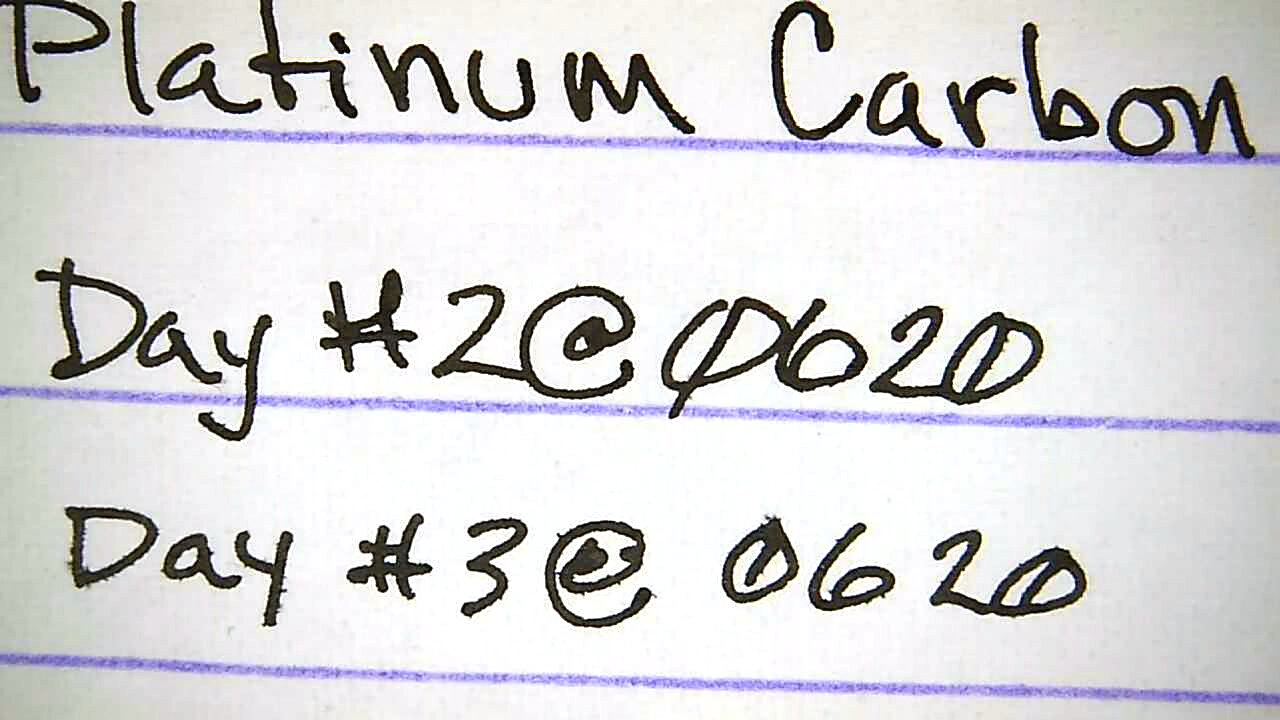 Platinum Carbon
Day #2@0620
Day #3@ 0620